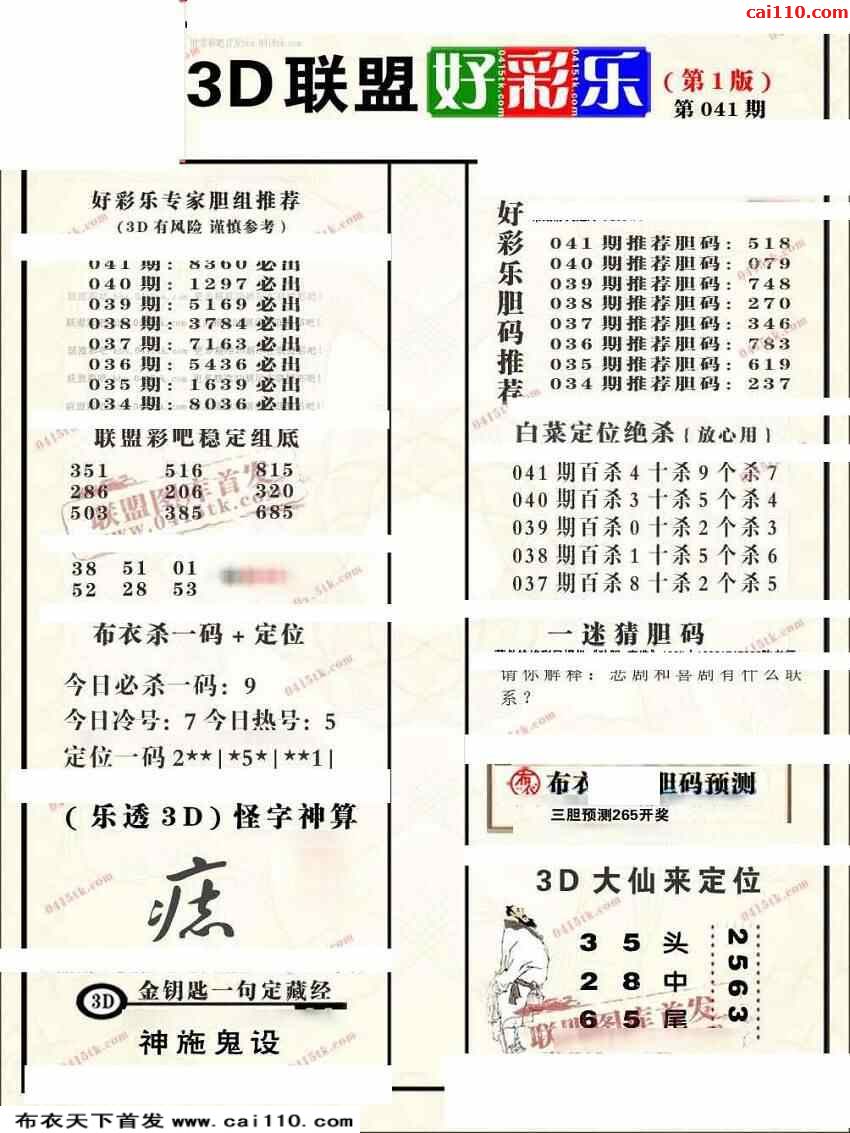 cai110.com
3D联盟好彩乐
(第1版)
第041期
好彩乐专家胆组推荐
(3D有风险 谨慎参考)
041期: 8360必出
040期: 1297必出
039期: 5169必出
038期: 3784必出
037期: 7163必出
036期: 5436必出
035期: 1639必出
034期: 8036必出
联盟彩吧稳定组底
351 516 815
286 206 320
503 385 685
38 51 01
52 28 53
布衣杀一码+定位
今日必杀一码: 9
今日冷号: 7 今日热号: 5
定位一码 2**|*5*|**1|
(乐透3D)怪字神算
痣
3D 金钥匙一句定藏经
神施鬼设
好彩乐胆码推荐
041期推荐胆码: 518
040期推荐胆码: 079
039期推荐胆码: 748
038期推荐胆码: 270
037期推荐胆码: 346
036期推荐胆码: 783
035期推荐胆码: 619
034期推荐胆码: 237
白菜定位绝杀{放心用}
041期百杀4十杀9个杀7
040期百杀3十杀5个杀4
039期百杀0十杀2个杀3
038期百杀1十杀5个杀6
037期百杀8十杀2个杀5
一迷猜胆码
请你解释: 悲剧和喜剧有什么联
系?
布衣 胆码预测
三胆预测265开奖
3D大仙来定位
3 5 头
2 8 中
6 5 尾
2563
联盟图库首发
www.0415tk.com
0415tk.com
布衣天下首发 www.cai110.com